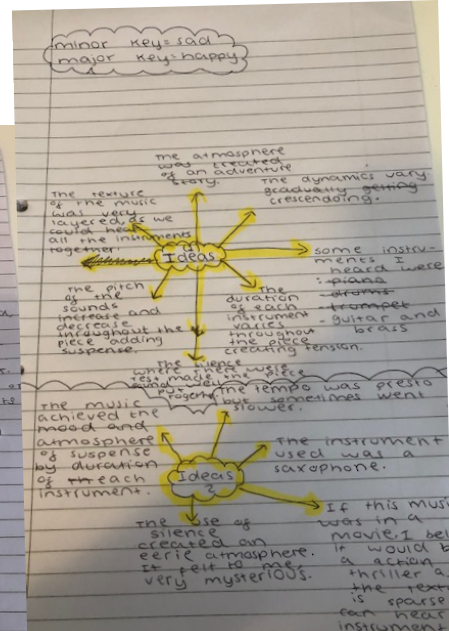 minor key=sad
major key=happy
The atmosphere
was created
of an adventure
story.
The dynamics vary
gradually getting
crescendoing.
The texture
of the music
was very
layered, as we
could hear
all the instruments
together.
Ideas
some instru-
ments I
heard were
:-piano
-drums
-trumpet
-guitar and
brass
The pitch
of the
sounds
increase and
decrease
throughout the
piece adding
suspense.
The
duration
of each
instrument
varies
throughout
the piece
creating tension.
The silence
where there was
rest made the piece
well
put
together
The tempo was presto
but sometimes went
slower.
The music
achieved the
mood and
atmosphere
of suspense
by duration
of each
instrument.
Ideas
2
The instrument
used was a
saxophone.
The use of
silence
created an
eerie atmosphere.
It felt to me
very mysterious.
If this musi
was in a
movie. I bel
it would b
a action
thriller a
the text
is sparse
can hear
instrument